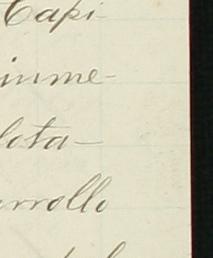 Capi-
inme-
lota-
rrollo